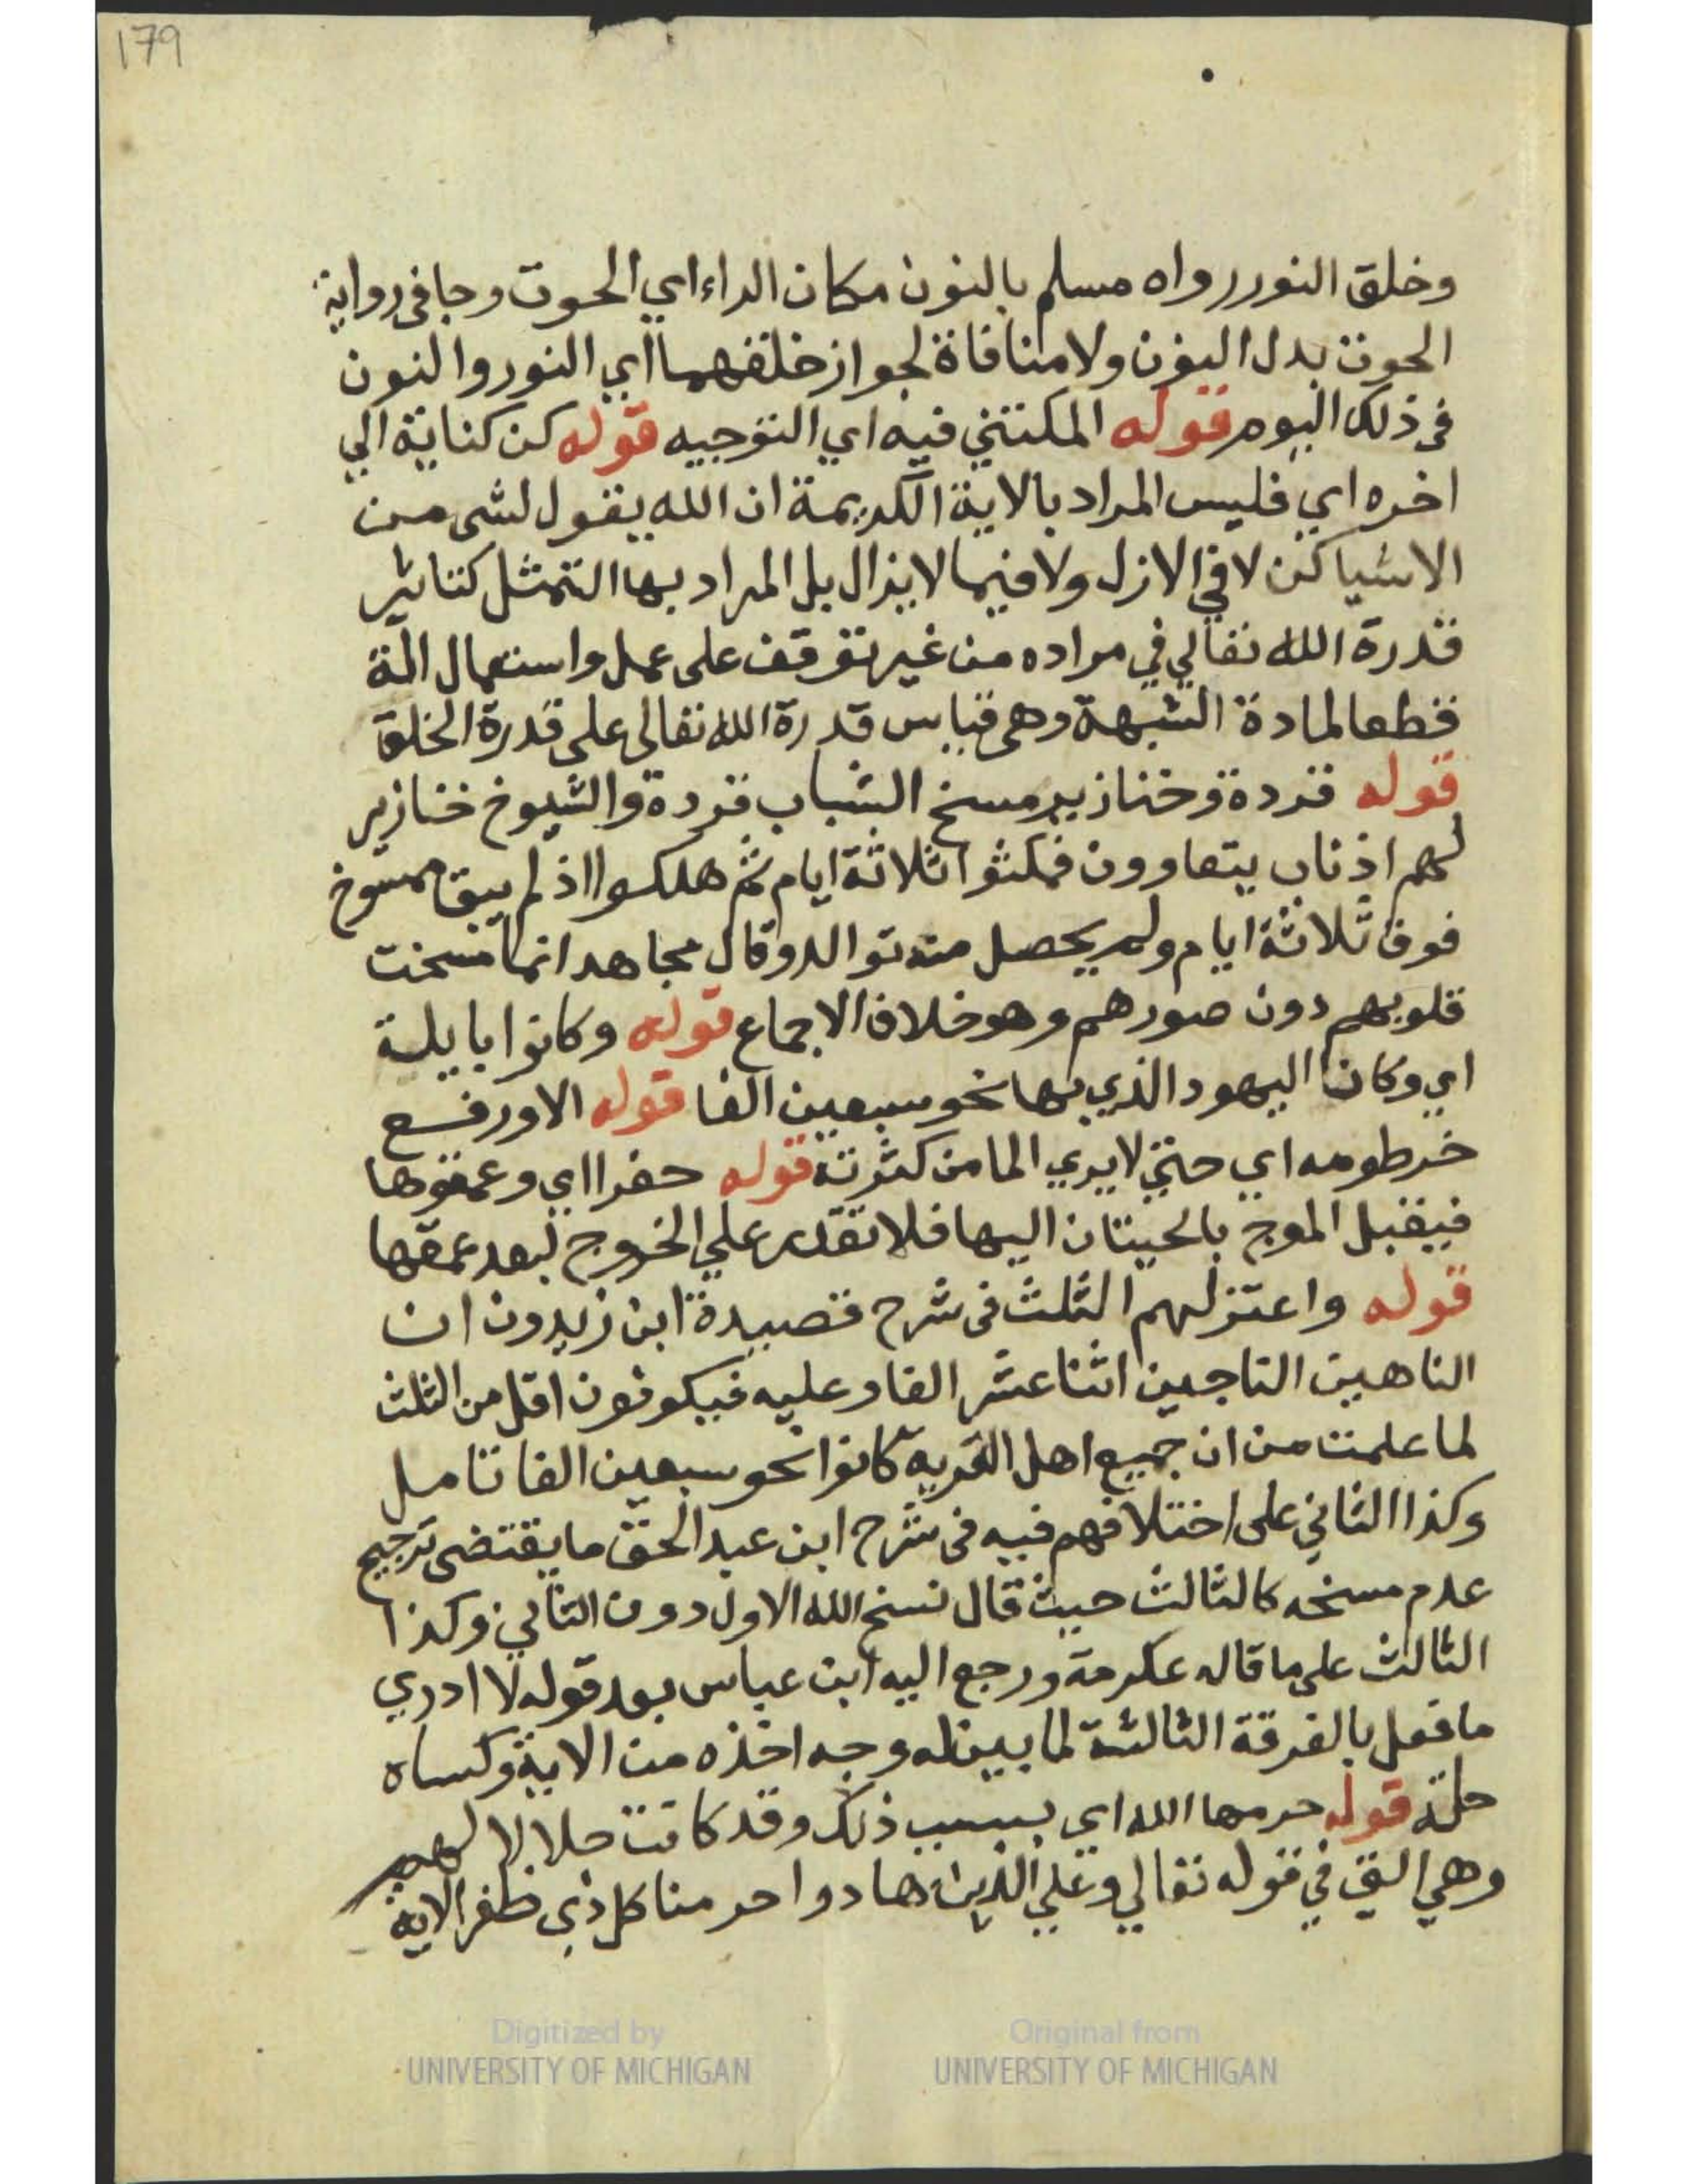 179
وخلق النور رواه مسلم بالنون مكان الراء اي الحوت وجا في رواية
الحوت بدل النون ولا منافاة لجواز خلقهما اي النور والنون
في ذلك اليوم قوله المكتني فيه اي التوجيه قوله كن كناية الي
اخره اي فليس المراد بالاية الكريمة ان الله يقول لشي من
الاشيا كن لا في الازل ولا فيما لا يزال بل المراد بها التمثل كتاثير
قدرة الله تعالي في مراده من غير توقف على عمل واستعمال الة
قطعا لمادة الشبهة وهي قياس قدرة الله تعالى على قدرة الخلق
قوله قردة وخنازير مسخ الشباب قردة والشيوخ خنازير
لهم اذناب يتعاوون فمكثوا ثلاثة ايام ثم هلكوا اذ لم يبق ممسوخ
فوق ثلاثة ايام ولم يحصل منه توالد وقال مجاهد انما مسخت
قلوبهم دون صورهم وهو خلاف الاجماع قوله وكانوا بايلة
اي وكان اليهود الذي بها نحو سبعين الفا قوله الا ورفع
خرطومه اي حتى لا يري الما من كثرته قوله حفرا اي وعمقوها
فيقبل الموج بالحيتان اليها فلا تقدر علي الخروج لبعد عمقها
قوله واعتزلهم الثلث في شرح قصيدة ابن زيدون ان
الناهين الناجين اثنا عشر الفا وعليه فيكونون اقل من الثلث
لما علمت من ان جميع اهل القرية كانوا نحو سبعين الفا تامل
وكذا الثاني على اختلافهم فيه في شرح ابن عبد الحق ما يقتضى ترجيح
عدم مسخه كالثالث حيث قال نسخ الله الاول دون الثاني وكذا
الثالث على ما قاله عكرمة ورجع اليه ابن عباس بعد قوله لا ادري
ما فعل بالفرقة الثالثة لما بين له وجه اخذه من الاية وكساه
حلة قوله حرمها الله اي بسبب ذلك وقد كانت حلالا لهم
وهي التي في قوله تعالي وعلي الذين هادوا حرمنا كل ذي ظفر الاية
Digitized by
UNIVERSITY OF MICHIGAN
Original from
UNIVERSITY OF MICHIGAN